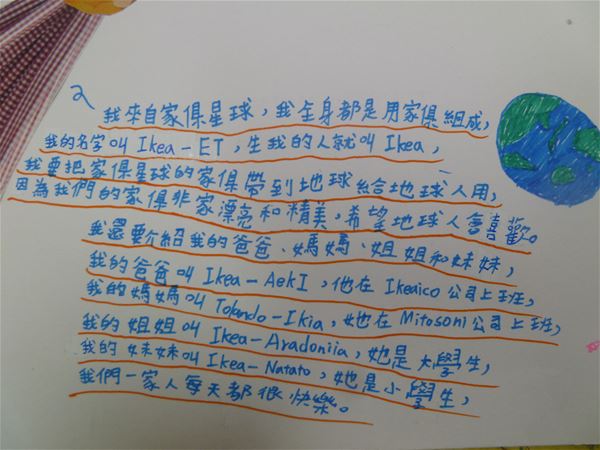 2
我來自家俱星球，我全身都是用家俱組成，
我的名字叫 Ikea-ET，生我的人就叫 Ikea，
我要把家俱星球的家俱帶到地球給地球人用，
因為我們的家俱非家漂亮和精美，希望地球人會喜歡。
我還要介紹我的爸爸、媽媽、姐姐和妹妹，
我的爸爸叫 Ikea-AekI，他在 Ikeaico 公司上班，
我的媽媽叫 Tolando-Ikia，她在 Mitosoni 公司上班，
我的姐姐叫 Ikea-Aradoniia，她是大學生，
我的妹妹叫 Ikea-Natato，她是小學生，
我們一家人每天都很快樂。